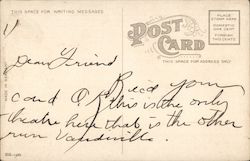 THIS SPACE FOR WRITING MESSAGES
POST CARD
PLACE STAMP HERE
DOMESTIC ONE CENT
FOREIGN TWO CENTS
THIS SPACE FOR ADDRESS ONLY
Dear Friend
Recd your
card O.K this is the only
theatre here that is the other
run Vaudeville.